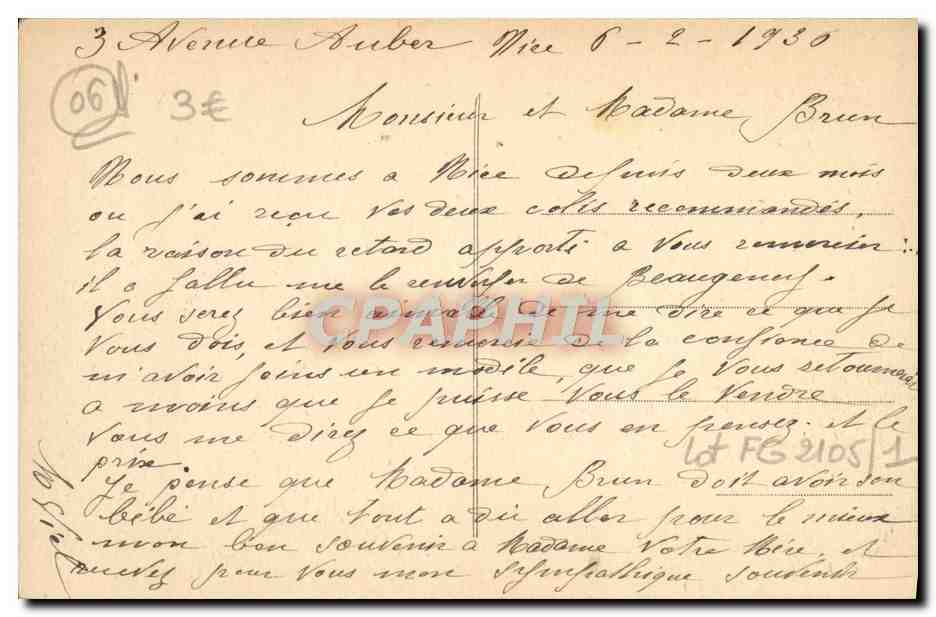 3 Avenue Auber Nice 6-2-1936
06
3€
Monsieur et Madame Brun
Nous sommes a Nice depuis deux mois
ou j'ai reçu vos deux colis recommandés,
la raison du retard apporté a vous remercier :
il a fallu me le renvoyer de Beaugency.
Vous serez bien aimable de me dire ce que je
Vous dois, et vous remercie de la confiance de
m'avoir joins un modèle, que je vous retournerai
a moins que je puisse vous le vendre
Vous me direz ce que vous en pensez. et le
prix.
lot FG2105/1
Je pense que Madame Brun doit avoir son
bébé et que tout a du aller pour le mieux
mon bon souvenir à Madame Votre Mère, et
recevez pour vous mon sympathique souvenir
CPAPHIL